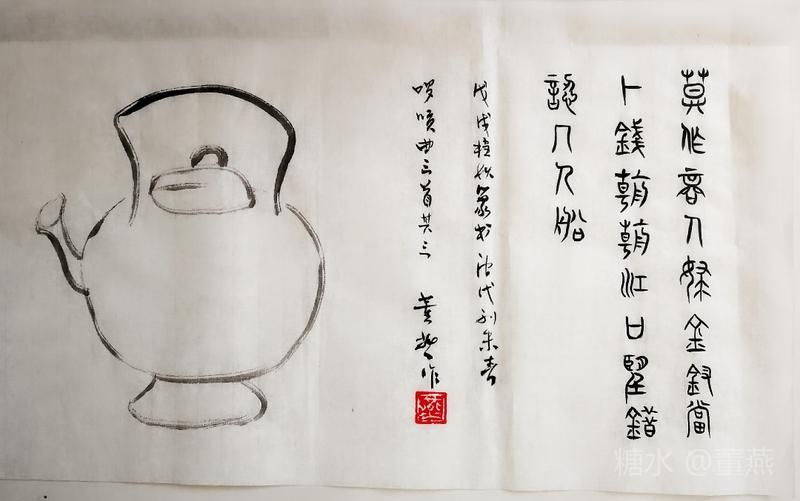 莫作商人婦金釵當
卜錢朝朝江口望錯
認几人船
戊戌桂秋篆书唐代刘采春
啰唝曲三首其三 董燕作
糖水 @董燕